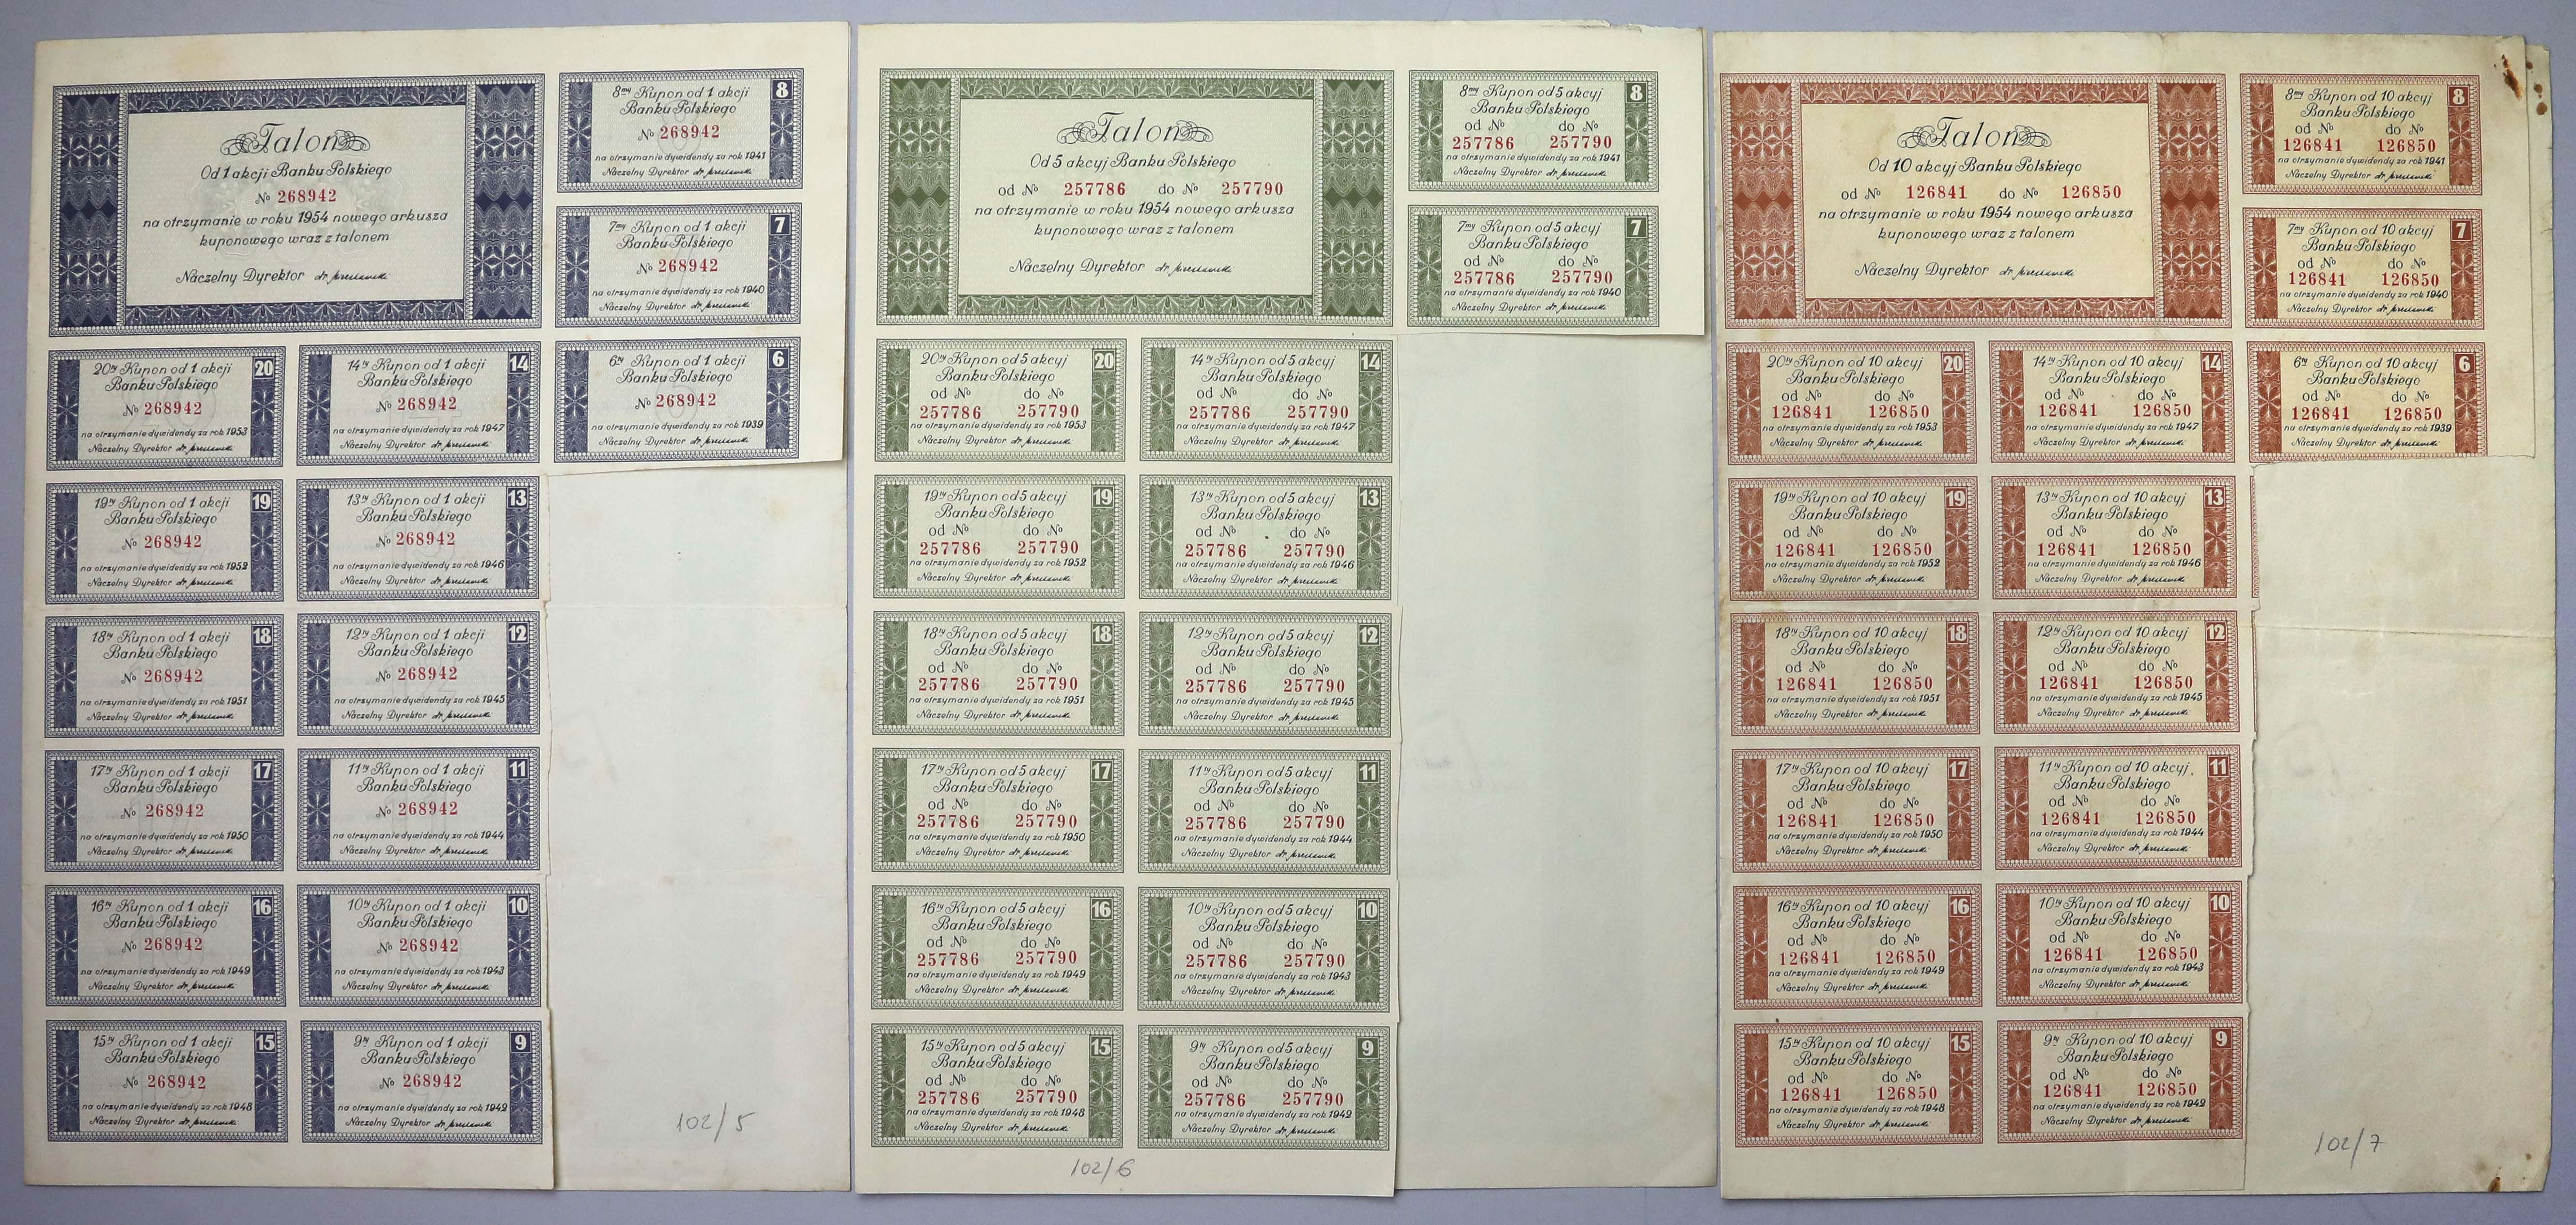 Talon
Od 1 akcji Banku Polskiego
№ 268942
na otrzymanie w roku 1954 nowego arkusza
kuponowego wraz z talonem
Naczelny Dyrektor
8my Kupon od 1 akcji 8
Banku Polskiego
№ 268942
na otrzymanie dywidendy za rok 1941
Naczelny Dyrektor
7my Kupon od 1 akcji 7
Banku Polskiego
№ 268942
na otrzymanie dywidendy za rok 1940
Naczelny Dyrektor
20ty Kupon od 1 akcji 20
Banku Polskiego
№ 268942
na otrzymanie dywidendy za rok 1953
Naczelny Dyrektor
14ty Kupon od 1 akcji 14
Banku Polskiego
№ 268942
na otrzymanie dywidendy za rok 1947
Naczelny Dyrektor
6ty Kupon od 1 akcji 6
Banku Polskiego
№ 268942
na otrzymanie dywidendy za rok 1939
Naczelny Dyrektor
19ty Kupon od 1 akcji 19
Banku Polskiego
№ 268942
na otrzymanie dywidendy za rok 1952
Naczelny Dyrektor
13ty Kupon od 1 akcji 13
Banku Polskiego
№ 268942
na otrzymanie dywidendy za rok 1946
Naczelny Dyrektor
18ty Kupon od 1 akcji 18
Banku Polskiego
№ 268942
na otrzymanie dywidendy za rok 1951
Naczelny Dyrektor
12ty Kupon od 1 akcji 12
Banku Polskiego
№ 268942
na otrzymanie dywidendy za rok 1945
Naczelny Dyrektor
17ty Kupon od 1 akcji 17
Banku Polskiego
№ 268942
na otrzymanie dywidendy za rok 1950
Naczelny Dyrektor
11ty Kupon od 1 akcji 11
Banku Polskiego
№ 268942
na otrzymanie dywidendy za rok 1944
Naczelny Dyrektor
16ty Kupon od 1 akcji 16
Banku Polskiego
№ 268942
na otrzymanie dywidendy za rok 1949
Naczelny Dyrektor
10ty Kupon od 1 akcji 10
Banku Polskiego
№ 268942
na otrzymanie dywidendy za rok 1943
Naczelny Dyrektor
15ty Kupon od 1 akcji 15
Banku Polskiego
№ 268942
na otrzymanie dywidendy za rok 1948
Naczelny Dyrektor
9ty Kupon od 1 akcji 9
Banku Polskiego
№ 268942
na otrzymanie dywidendy za rok 1942
Naczelny Dyrektor
102/5
Talon
Od 5 akcyj Banku Polskiego
od № 257786 do № 257790
na otrzymanie w roku 1954 nowego arkusza
kuponowego wraz z talonem
Naczelny Dyrektor
8my Kupon od 5 akcyj 8
Banku Polskiego
od № do №
257786 257790
na otrzymanie dywidendy za rok 1941
Naczelny Dyrektor
7my Kupon od 5 akcyj 7
Banku Polskiego
od № do №
257786 257790
na otrzymanie dywidendy za rok 1940
Naczelny Dyrektor
20ty Kupon od 5 akcyj 20
Banku Polskiego
od № do №
257786 257790
na otrzymanie dywidendy za rok 1953
Naczelny Dyrektor
14ty Kupon od 5 akcyj 14
Banku Polskiego
od № do №
257786 257790
na otrzymanie dywidendy za rok 1947
Naczelny Dyrektor
19ty Kupon od 5 akcyj 19
Banku Polskiego
od № do №
257786 257790
na otrzymanie dywidendy za rok 1952
Naczelny Dyrektor
13ty Kupon od 5 akcyj 13
Banku Polskiego
od № do №
257786 257790
na otrzymanie dywidendy za rok 1946
Naczelny Dyrektor
18ty Kupon od 5 akcyj 18
Banku Polskiego
od № do №
257786 257790
na otrzymanie dywidendy za rok 1951
Naczelny Dyrektor
12ty Kupon od 5 akcyj 12
Banku Polskiego
od № do №
257786 257790
na otrzymanie dywidendy za rok 1945
Naczelny Dyrektor
17ty Kupon od 5 akcyj 17
Banku Polskiego
od № do №
257786 257790
na otrzymanie dywidendy za rok 1950
Naczelny Dyrektor
11ty Kupon od 5 akcyj 11
Banku Polskiego
od № do №
257786 257790
na otrzymanie dywidendy za rok 1944
Naczelny Dyrektor
16ty Kupon od 5 akcyj 16
Banku Polskiego
od № do №
257786 257790
na otrzymanie dywidendy za rok 1949
Naczelny Dyrektor
10ty Kupon od 5 akcyj 10
Banku Polskiego
od № do №
257786 257790
na otrzymanie dywidendy za rok 1943
Naczelny Dyrektor
15ty Kupon od 5 akcyj 15
Banku Polskiego
od № do №
257786 257790
na otrzymanie dywidendy za rok 1948
Naczelny Dyrektor
9ty Kupon od 5 akcyj 9
Banku Polskiego
od № do №
257786 257790
na otrzymanie dywidendy za rok 1942
Naczelny Dyrektor
102/6
Talon
Od 10 akcyj Banku Polskiego
od № 126841 do № 126850
na otrzymanie w roku 1954 nowego arkusza
kuponowego wraz z talonem
Naczelny Dyrektor
8my Kupon od 10 akcyj 8
Banku Polskiego
od № do №
126841 126850
na otrzymanie dywidendy za rok 1941
Naczelny Dyrektor
7my Kupon od 10 akcyj 7
Banku Polskiego
od № do №
126841 126850
na otrzymanie dywidendy za rok 1940
Naczelny Dyrektor
20ty Kupon od 10 akcyj 20
Banku Polskiego
od № do №
126841 126850
na otrzymanie dywidendy za rok 1953
Naczelny Dyrektor
14ty Kupon od 10 akcyj 14
Banku Polskiego
od № do №
126841 126850
na otrzymanie dywidendy za rok 1947
Naczelny Dyrektor
6ty Kupon od 10 akcyj 6
Banku Polskiego
od № do №
126841 126850
na otrzymanie dywidendy za rok 1939
Naczelny Dyrektor
19ty Kupon od 10 akcyj 19
Banku Polskiego
od № do №
126841 126850
na otrzymanie dywidendy za rok 1952
Naczelny Dyrektor
13ty Kupon od 10 akcyj 13
Banku Polskiego
od № do №
126841 126850
na otrzymanie dywidendy za rok 1946
Naczelny Dyrektor
18ty Kupon od 10 akcyj 18
Banku Polskiego
od № do №
126841 126850
na otrzymanie dywidendy za rok 1951
Naczelny Dyrektor
12ty Kupon od 10 akcyj 12
Banku Polskiego
od № do №
126841 126850
na otrzymanie dywidendy za rok 1945
Naczelny Dyrektor
17ty Kupon od 10 akcyj 17
Banku Polskiego
od № do №
126841 126850
na otrzymanie dywidendy za rok 1950
Naczelny Dyrektor
11ty Kupon od 10 akcyj 11
Banku Polskiego
od № do №
126841 126850
na otrzymanie dywidendy za rok 1944
Naczelny Dyrektor
16ty Kupon od 10 akcyj 16
Banku Polskiego
od № do №
126841 126850
na otrzymanie dywidendy za rok 1949
Naczelny Dyrektor
10ty Kupon od 10 akcyj 10
Banku Polskiego
od № do №
126841 126850
na otrzymanie dywidendy za rok 1943
Naczelny Dyrektor
15ty Kupon od 10 akcyj 15
Banku Polskiego
od № do №
126841 126850
na otrzymanie dywidendy za rok 1948
Naczelny Dyrektor
9ty Kupon od 10 akcyj 9
Banku Polskiego
od № do №
126841 126850
na otrzymanie dywidendy za rok 1942
Naczelny Dyrektor
102/7